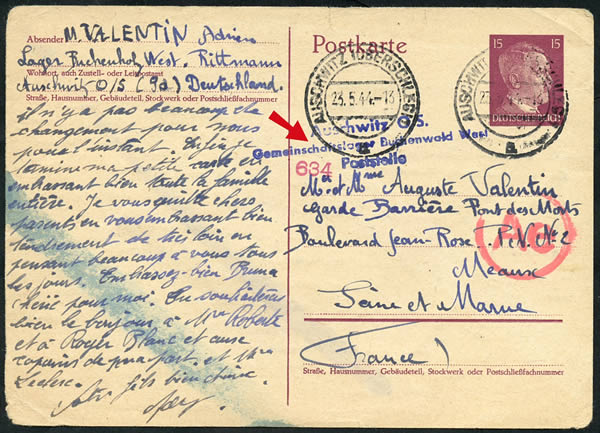 Absender: M. VALENTIN Adrien
Lager Buchenholz West. Rittmann
Wohnort, auch Zustell- oder Leitpostamt
Auschwitz O/S (9a) Deutschland.
Straße, Hausnummer, Gebäudeteil, Stockwerk oder Postschließfachnummer
il n'y a pas beaucoup de
changement pour nous
pour l'instant. Enfin je
termine ma petite carte en
embrassant bien toute la famille
entière. Je vous quitte chers
parents en vous embrassant bien
tendrement de très loin en
pensant beaucoup à vous tous
les jours. Embrassez-bien
chérie pour moi. Tu souhaiteras
bien le bonjour à Mme Roberte
et à Roger Blanc et aux
copains de ma part et Mme
Leclerc.
fils bien
Postkarte
15 15
DEUTSCHES REICH
AUSCHWITZ (OBERSCHLES)
23.5.44.-13
a
AUSCHWITZ
a
Auschwitz O/S.
Gemeinschaftslager Buchenwald West
Poststelle
634
Mr et Mme Auguste Valentin
Garde Barrière Pont des Morts
Boulevard Jean-Rose P.N. N° 2
Meaux
Seine et Marne
(France)
Ae
Straße, Hausnummer, Gebäudeteil, Stockwerk oder Postschließfachnummer